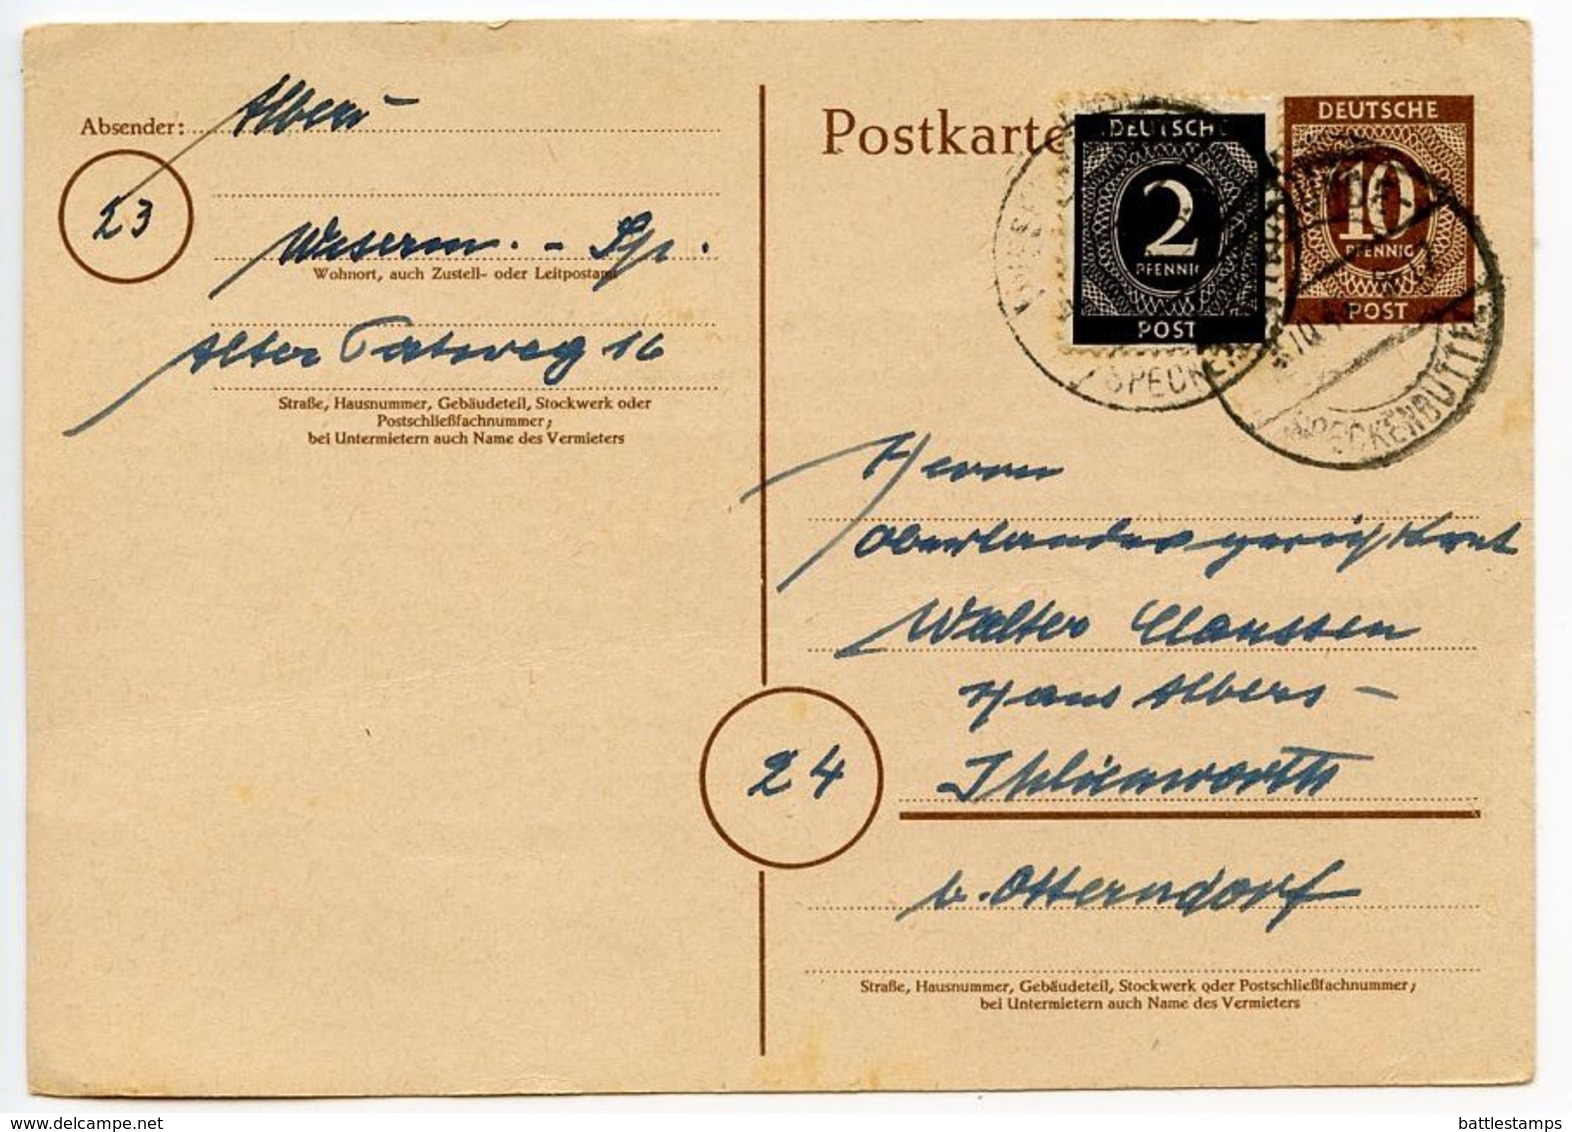 Absender: Albers
23
Weserm. - Sp.
Wohnort, auch Zustell- oder Leitpostamt
Alter Postweg 16
Straße, Hausnummer, Gebäudeteil, Stockwerk oder
Postschließfachnummer;
bei Untermietern auch Name des Vermieters
Postkarte
DEUTSCHE
2
PFENNIG
POST
DEUTSCHE
10
PFENNIG
POST
SPECKENBÜTTEL
Herrn
Oberlandesgerichtsrat
Walter Claussen
Hans Albers -
24
Ihlienworth
b. Otterndorf
Straße, Hausnummer, Gebäudeteil, Stockwerk oder Postschließfachnummer;
bei Untermietern auch Name des Vermieters
www.delcampe.net
battlestamps